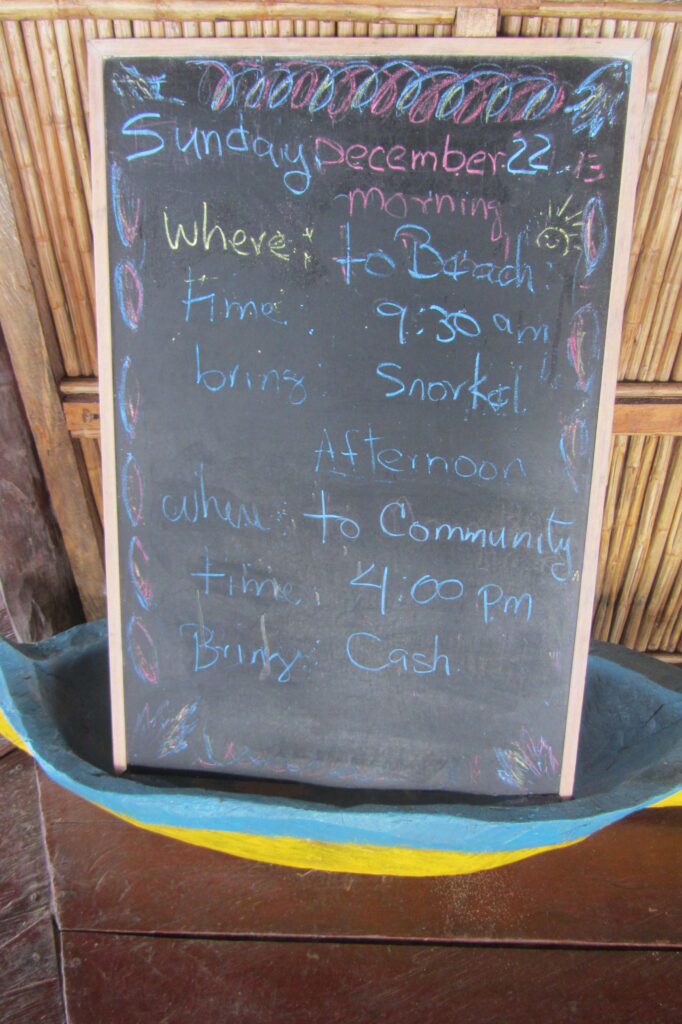 Sunday, December 22 13
morning
Where: to Beach:
time: 9:30 am
bring: Snorkel
Afternoon
where: to Community
time: 4:00 pm
Bring: Cash